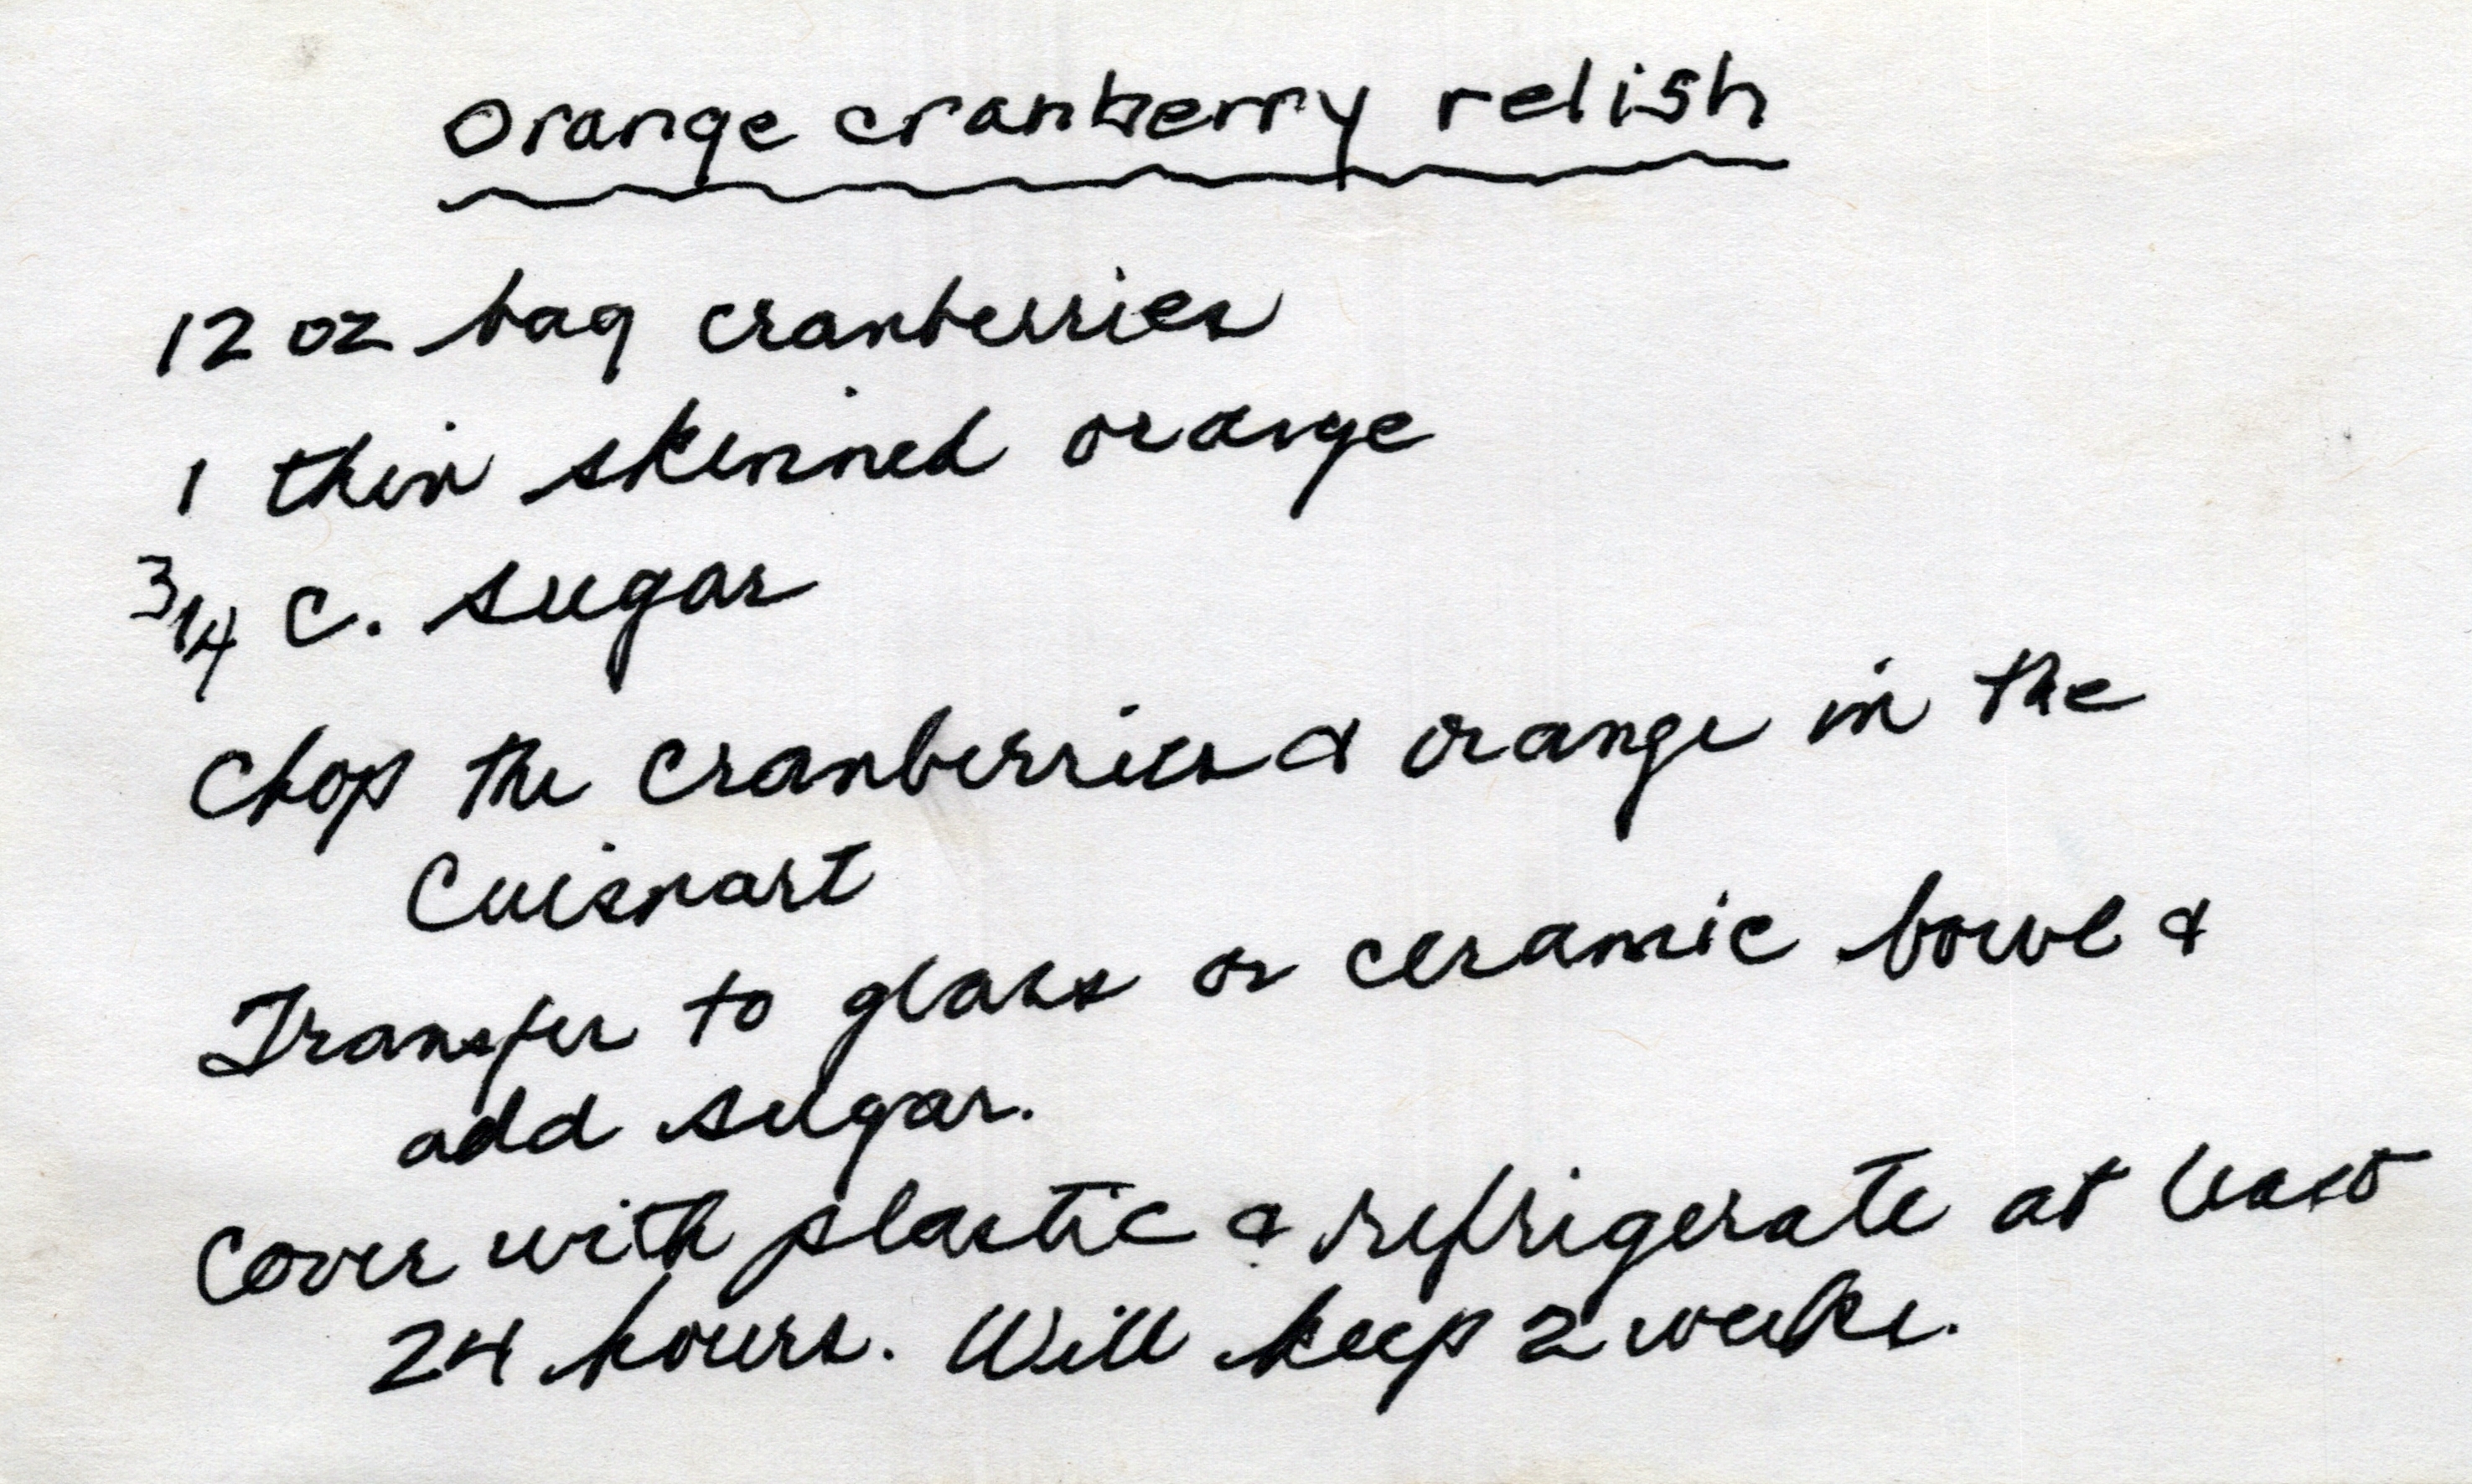 Orange cranberry relish
12 oz bag cranberries
1 thin skinned orange
3/4 c. sugar
Chop the cranberries & orange in the
Cuisnart
Transfer to glass or ceramic bowl &
add sugar.
Cover with plastic & refrigerate at least
24 hours. Will keep 2 weeks.